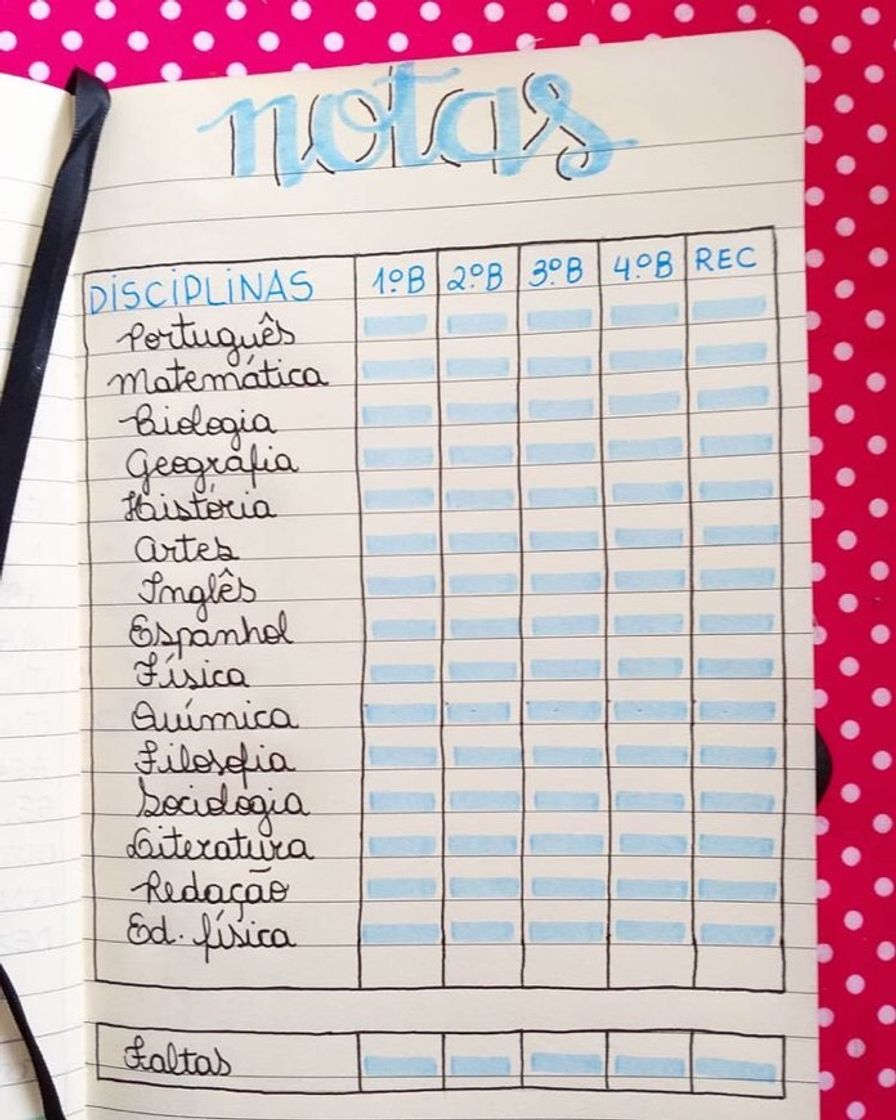 notas
DISCIPLINAS 1ºB 2ºB 3ºB 4ºB REC
Português
Matemática
Biologia
Geografia
História
Artes
Inglês
Espanhol
Física
Química
Filosofia
Sociologia
Literatura
Redação
Ed. física
Faltas